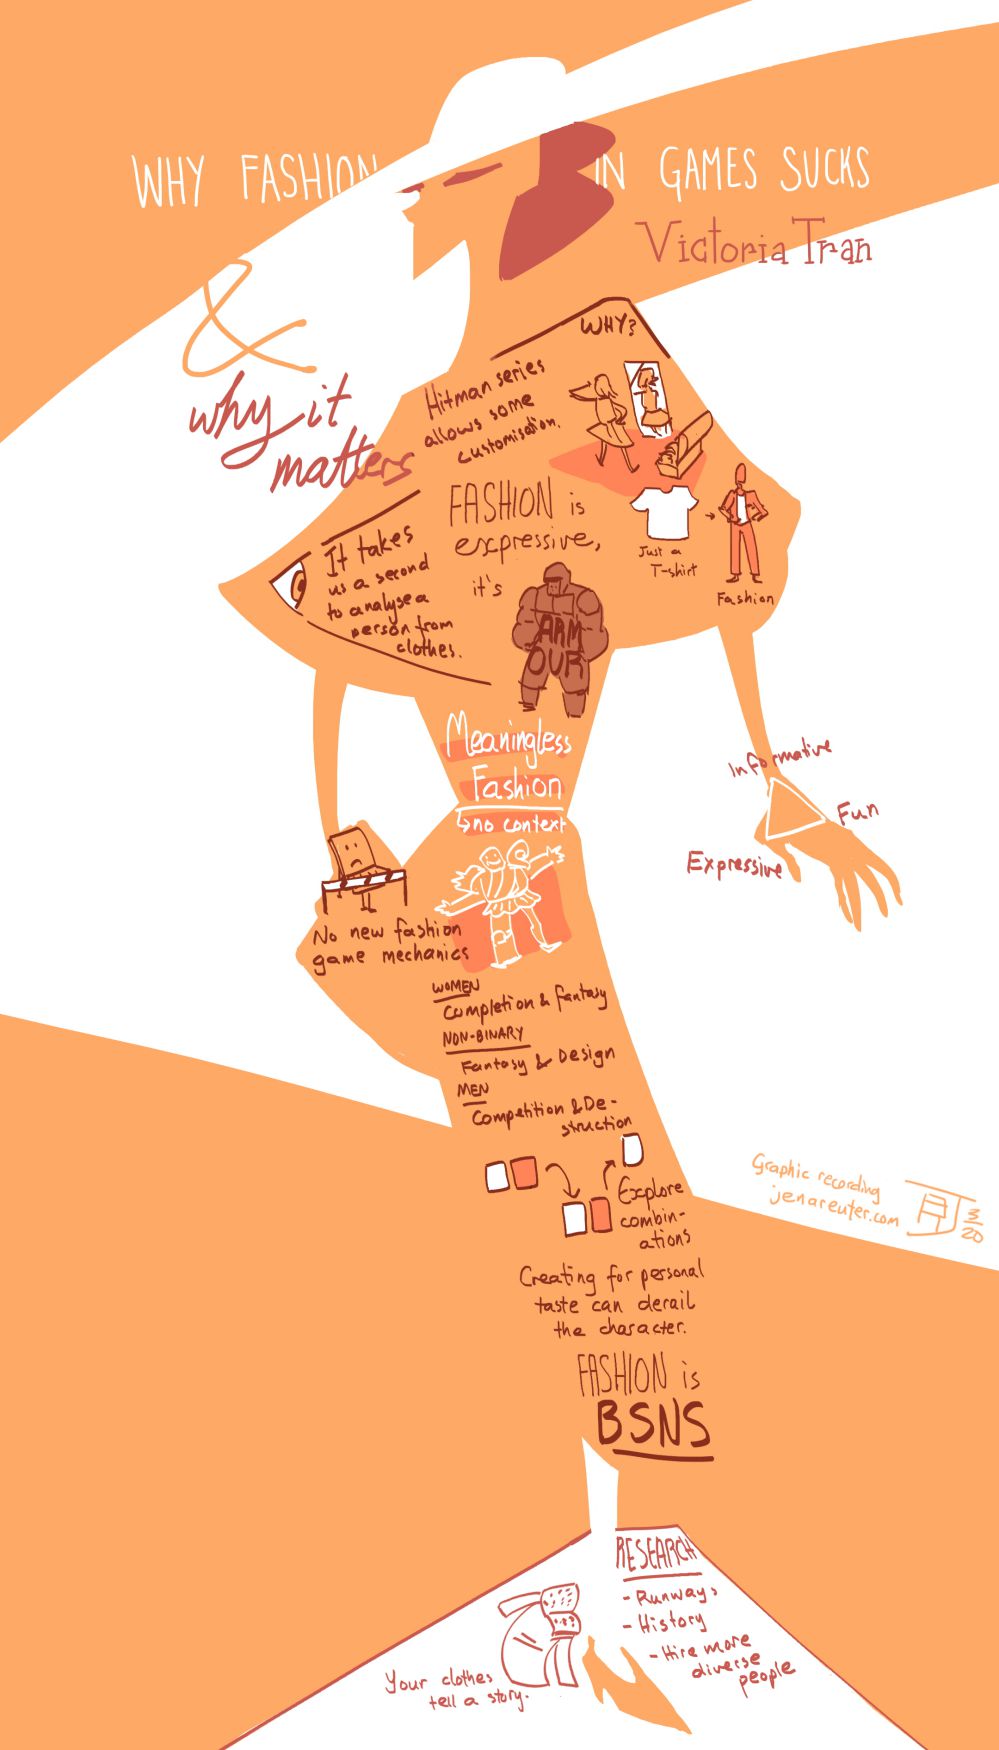 WHY FASHION IN GAMES SUCKS
Victoria Tran
&
why it
matters
WHY?
Hitman series
allows some
customisation.
FASHION is
expressive,
it's
ARM
OUR
Just a
T-shirt
Fashion
It takes
us a second
to analyse a
person from
clothes.
Meaningless
Fashion
↳ no context
Informative
Fun
Expressive
No new fashion
game mechanics
WOMEN
Completion & fantasy
NON-BINARY
Fantasy & Design
MEN
Competition & De-
struction
Explore
combin-
ations
Creating for personal
taste can derail
the character.
FASHION is
BSNS
Graphic recording
jenareuter.com
3/20
RESEARCH
- Runways
- History
- Hire more
diverse
people
Your clothes
tell a story.